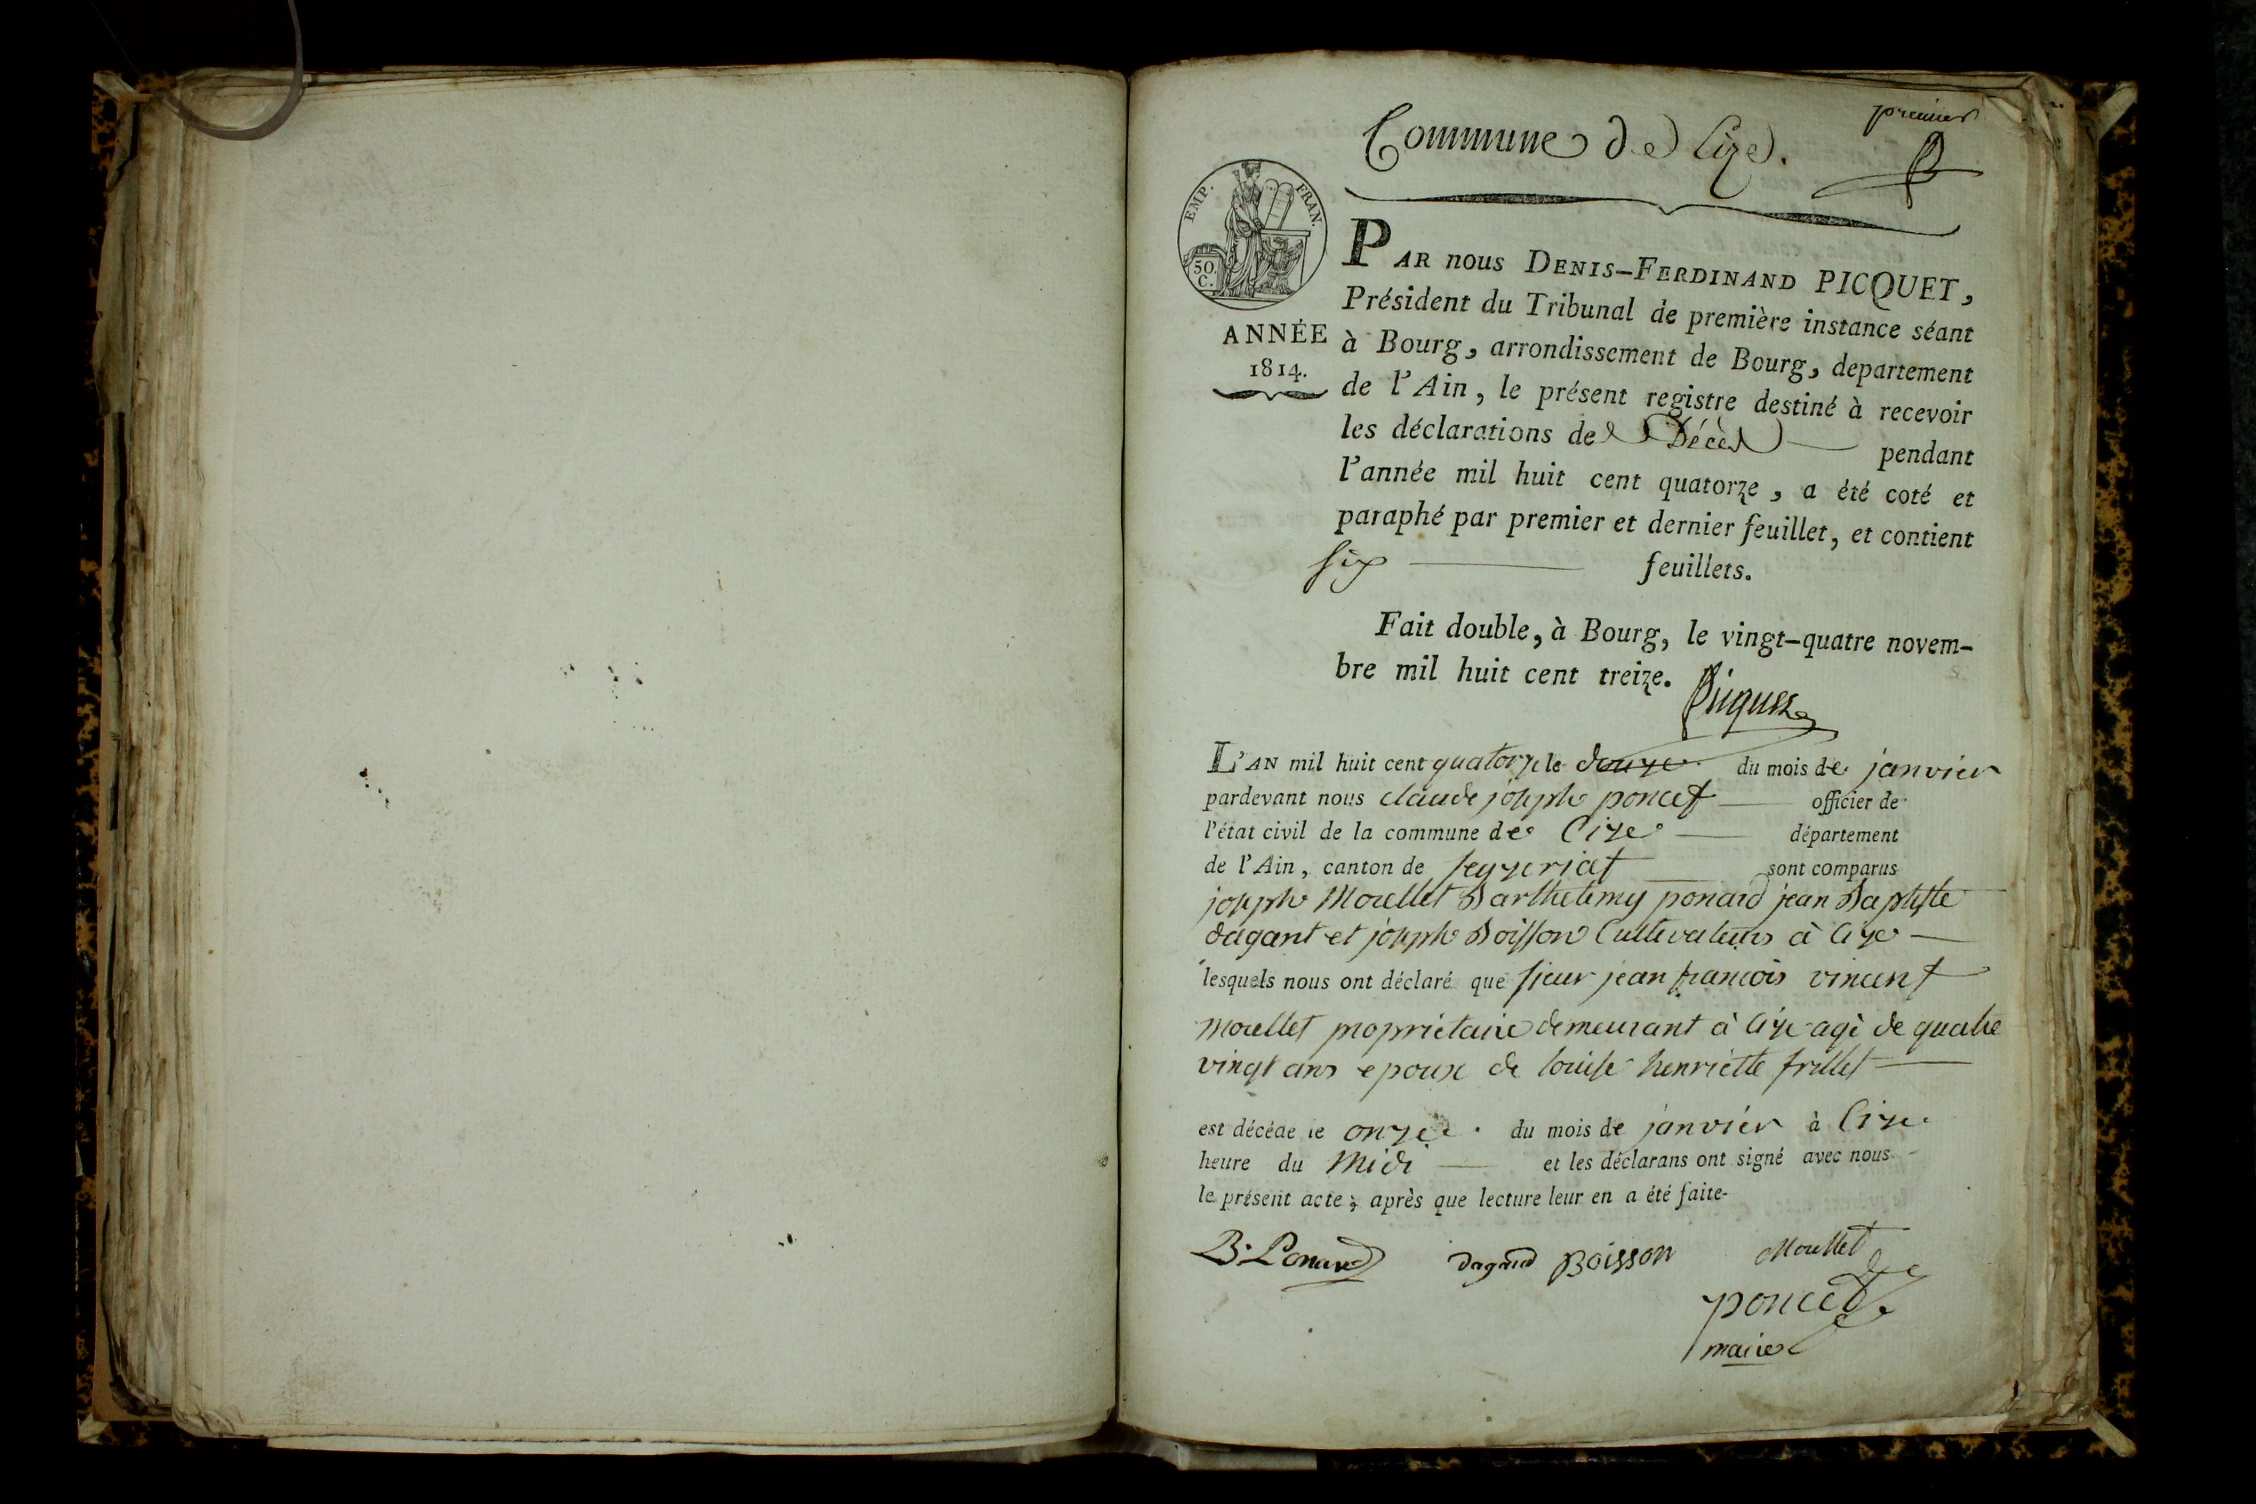 premier
Commune de Cize.
EMP. FRAN.
50. C.
ANNÉE
1814.
PAR nous DENIS-FERDINAND PICQUET,
Président du Tribunal de première instance séant
à Bourg, arrondissement de Bourg, departement
de l'Ain, le présent registre destiné à recevoir
les déclarations de Décès pendant
l'année mil huit cent quatorze, a été coté et
paraphé par premier et dernier feuillet, et contient
six feuillets.
Fait double, à Bourg, le vingt-quatre novem-
bre mil huit cent treize.
Picquet
L'AN mil huit cent quatorze le douze du mois de janvier
pardevant nous claude joseph poncet officier de
l'état civil de la commune de Cize département
de l'Ain, canton de seyzeriat sont comparus
joseph Morellet Barthelemy ponard jean Baptiste
dagant et joseph Boisson Cultivateurs à Cize
lesquels nous ont déclaré que sieur jean francois vincent
morellet propriétaire demeurant à Cize agé de quatre
vingt ans epoux de louise henriette frillet
est décédé le onze du mois de janvier à Cize
heure du Midi et les déclarans ont signé avec nous
le présent acte, après que lecture leur en a été faite.
B. Ponard dagand Boisson Morellet
poncet
maire